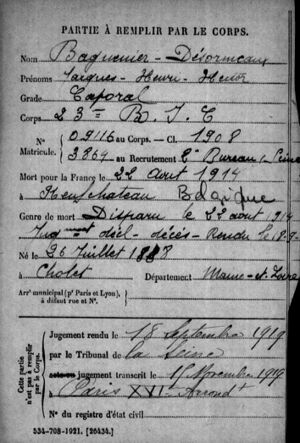 PARTIE À REMPLIR PAR LE CORPS.
Nom Baguenier - Désormeaux
Prénoms Jacques - Henri -
Grade Caporal
Corps 23e B. I. C
N° 09116 au Corps. — Cl. 1908
Matricule. 3864 au Recrutement Bureau Seine
Mort pour la France le 22 Août 1914
à Neufchateau Belgique
Genre de mort Disparu le 22 août 1914
Jugmont décl - décès - Rendu le 18-9-
Né le 26 Juillet 1888
à Cholet Département Maine-et-Loire
Arr' municipal (p' Paris et Lyon),
à défaut rue et N°.
Cette partie
n'est pas à remplir
par le Corps.
Jugement rendu le 18 Septembre 1919
par le Tribunal de la Seine
jugement transcrit le 15 Novembre 1919
à Paris XVIe Arrondt
N° du registre d'état civil
534-708-1921. [26434.]